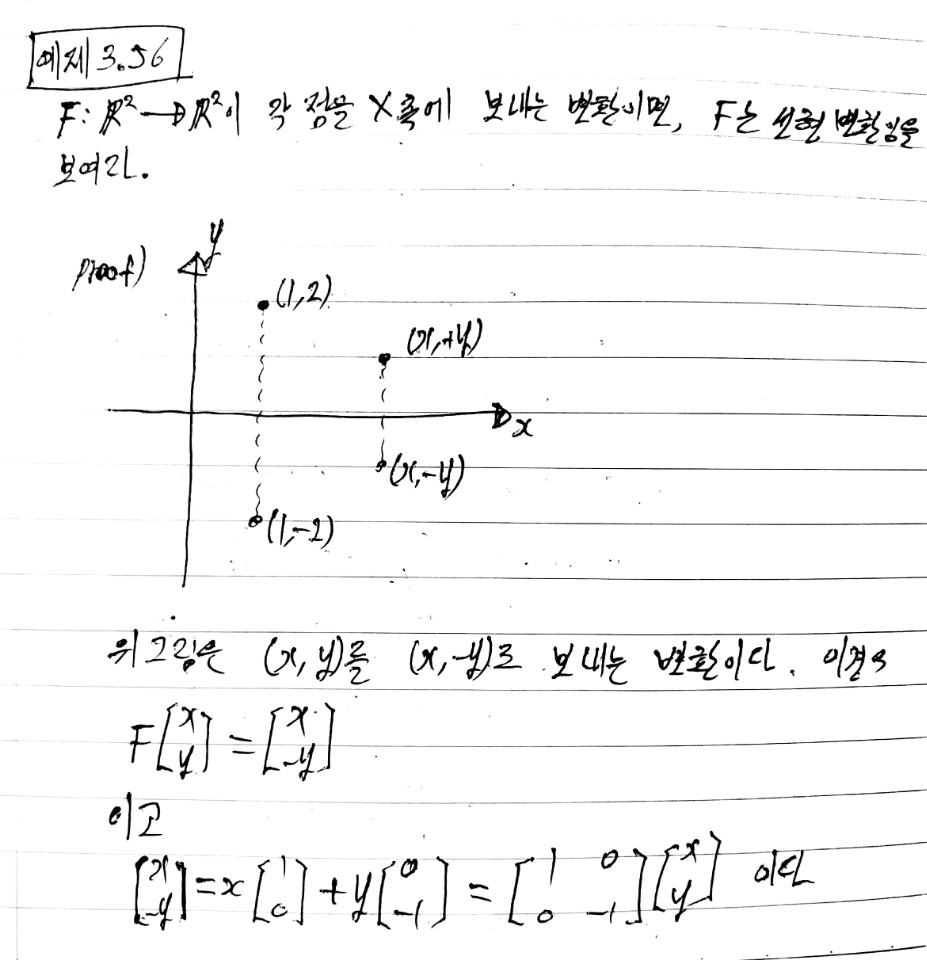 예제 3.56
F: ℝ²→ℝ²이 각 점을 X축에 보내는 변환이면, F는 선형 변환임을
보여라.
proof)
y
(1,2)
(x,+y)
x
(x,-y)
(1,-2)
위 그림은 (x,y)를 (x,-y)로 보내는 변환이다.
F[x y] = [x -y]
이고
[x -y] = x[1 0] + y[0 -1] = [1 0 0 -1][x y] 이다